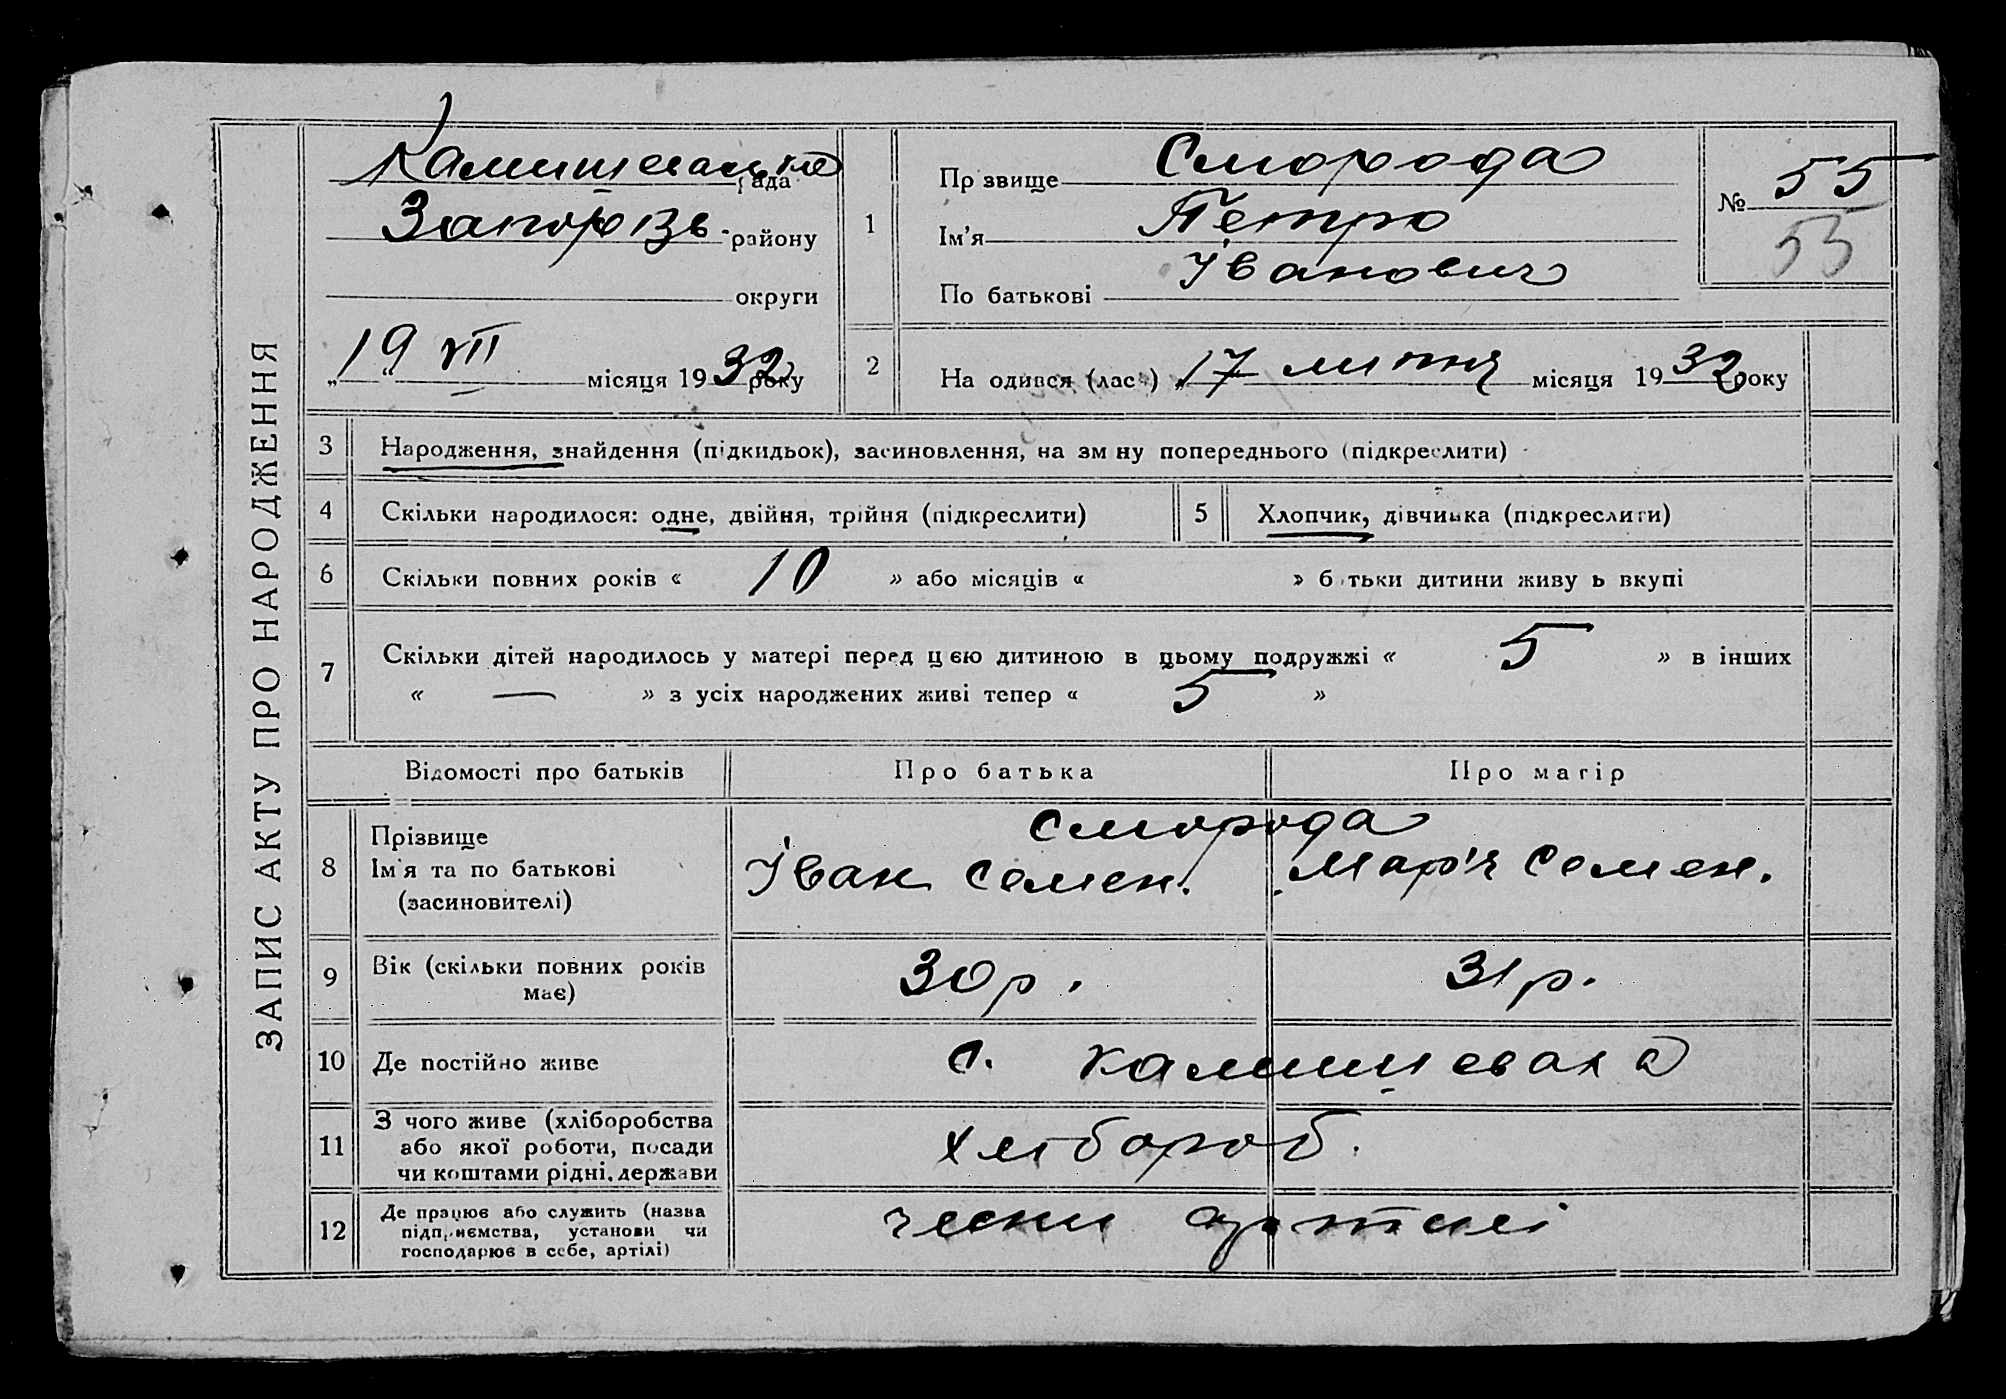 ЗАПИС АКТУ ПРО НАРОДЖЕННЯ
рада
Запоріз. району
округи
"19" VII місяця 1932 року
1
Прізвище Сморода
Ім'я Петро
По батькові Іванович
№ 55
55
2
Народився (лась) "17" липня місяця 1932 року
3
Народження, знайдення (підкидьок), засиновлення, на зміну попереднього (підкреслити)
4
Скільки народилося: одне, двійня, трійня (підкреслити)
5
Хлопчик, дівчинка (підкреслити)
6
Скільки повних років « 10 » або місяців « » батьки дитини живуть вкупі
7
Скільки дітей народилось у матері перед цією дитиною в цьому подружжі « 5 » в інших
« — » з усіх народжених живі тепер « 5 »
Відомості про батьків
Про батька
Про матір
8
Прізвище
Ім'я та по батькові
(засиновителі)
Сморода
Іван Семен.
Мар'я Семен.
9
Вік (скільки повних років
має)
30 р.
31 р.
10
Де постійно живе
с. Камишеваха
11
З чого живе (хліборобства
або якої роботи, посади
чи коштами рідні, держави
хлібороб.
12
Де працює або служить (назва
підприємства, установи чи
господарює в себе, артілі)
члени артилі